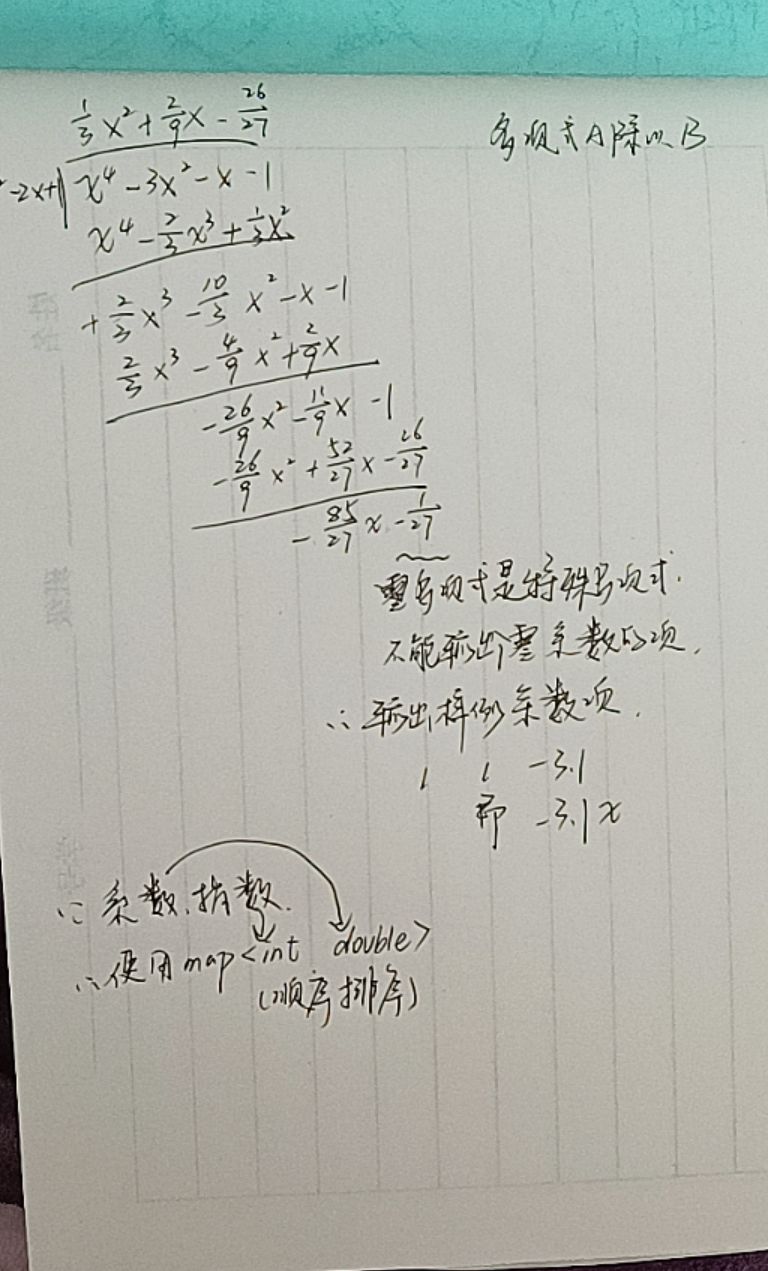 多项式A除以B
1/3 x² + 2/9 x - 26/27
-2x+1 x⁴ - 3x² - x - 1
x⁴ - 2/3 x³ + 1/3 x²
+ 2/3 x³ - 10/3 x² - x - 1
2/3 x³ - 4/9 x² + 2/9 x
- 26/9 x² - 11/9 x - 1
- 26/9 x² + 52/27 x - 26/27
- 85/27 x - 1/27
零多项式是特殊多项式.
不能输出零系数的项.
∴ 输出样例系数项.
1 1 -3.1
即 -3.1x
∵ 系数、指数.
∴ 使用 map<int double>
(顺序排序)